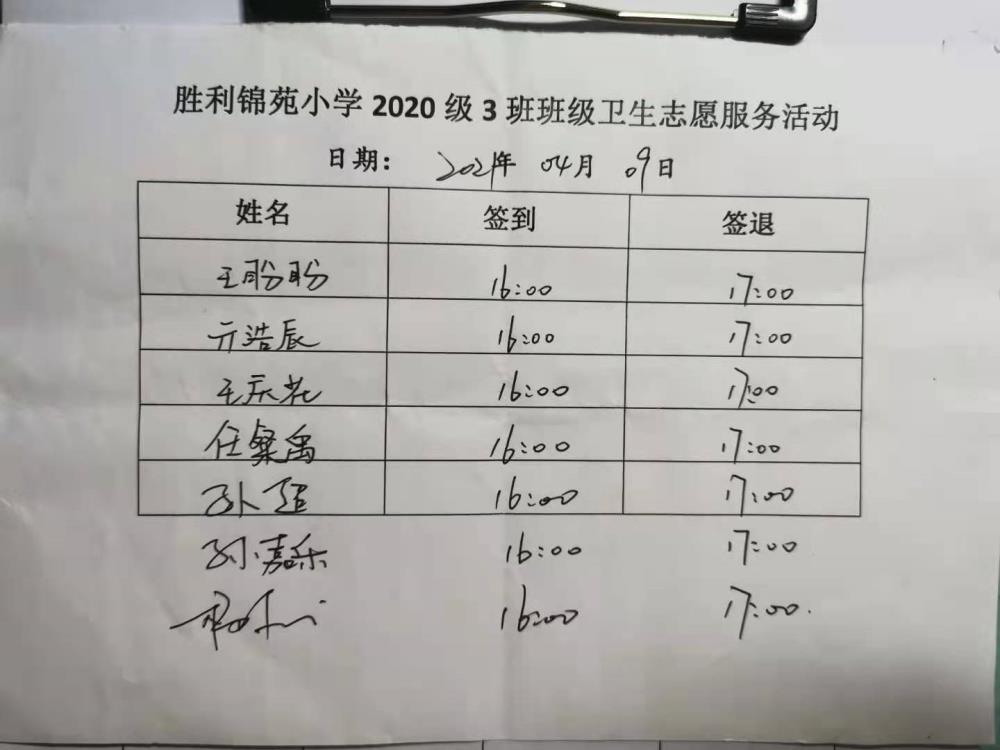 胜利锦苑小学 2020 级 3 班班级卫生志愿服务活动
日期： 2021年 04月 09日
姓名 签到 签退
王盼盼 16:00 17:00
亓浩辰 16:00 17:00
王庆花 16:00 17:00
任粲禹 16:00 17:00
孙超 16:00 17:00
孙嘉乐 16:00 17:00
16:00 17:00.